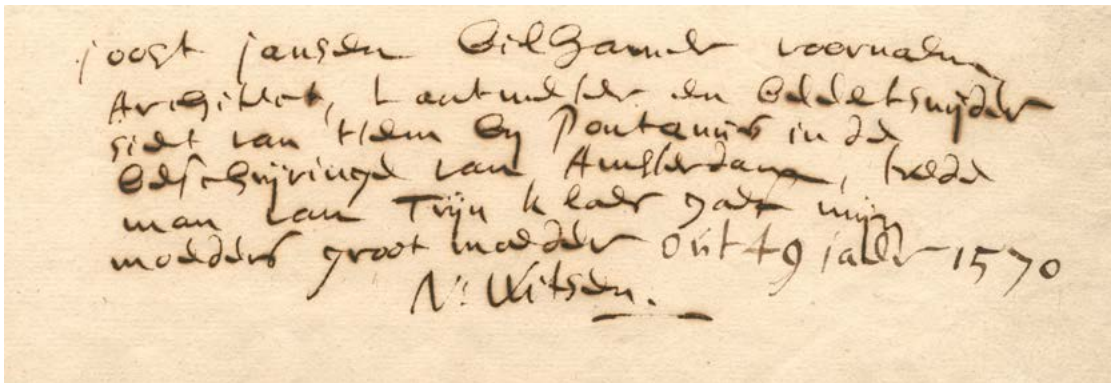 joost jansen bilhamer voornaem
Architect, Lantmeter en beeldtsnijder
siet van Hem by Pontanus in de
beschrijvinge van Amsterdam, twede
man van Trijn klaes gaef mijn
moeders groot moeder out 49 jaer 1570
N: Witsen.